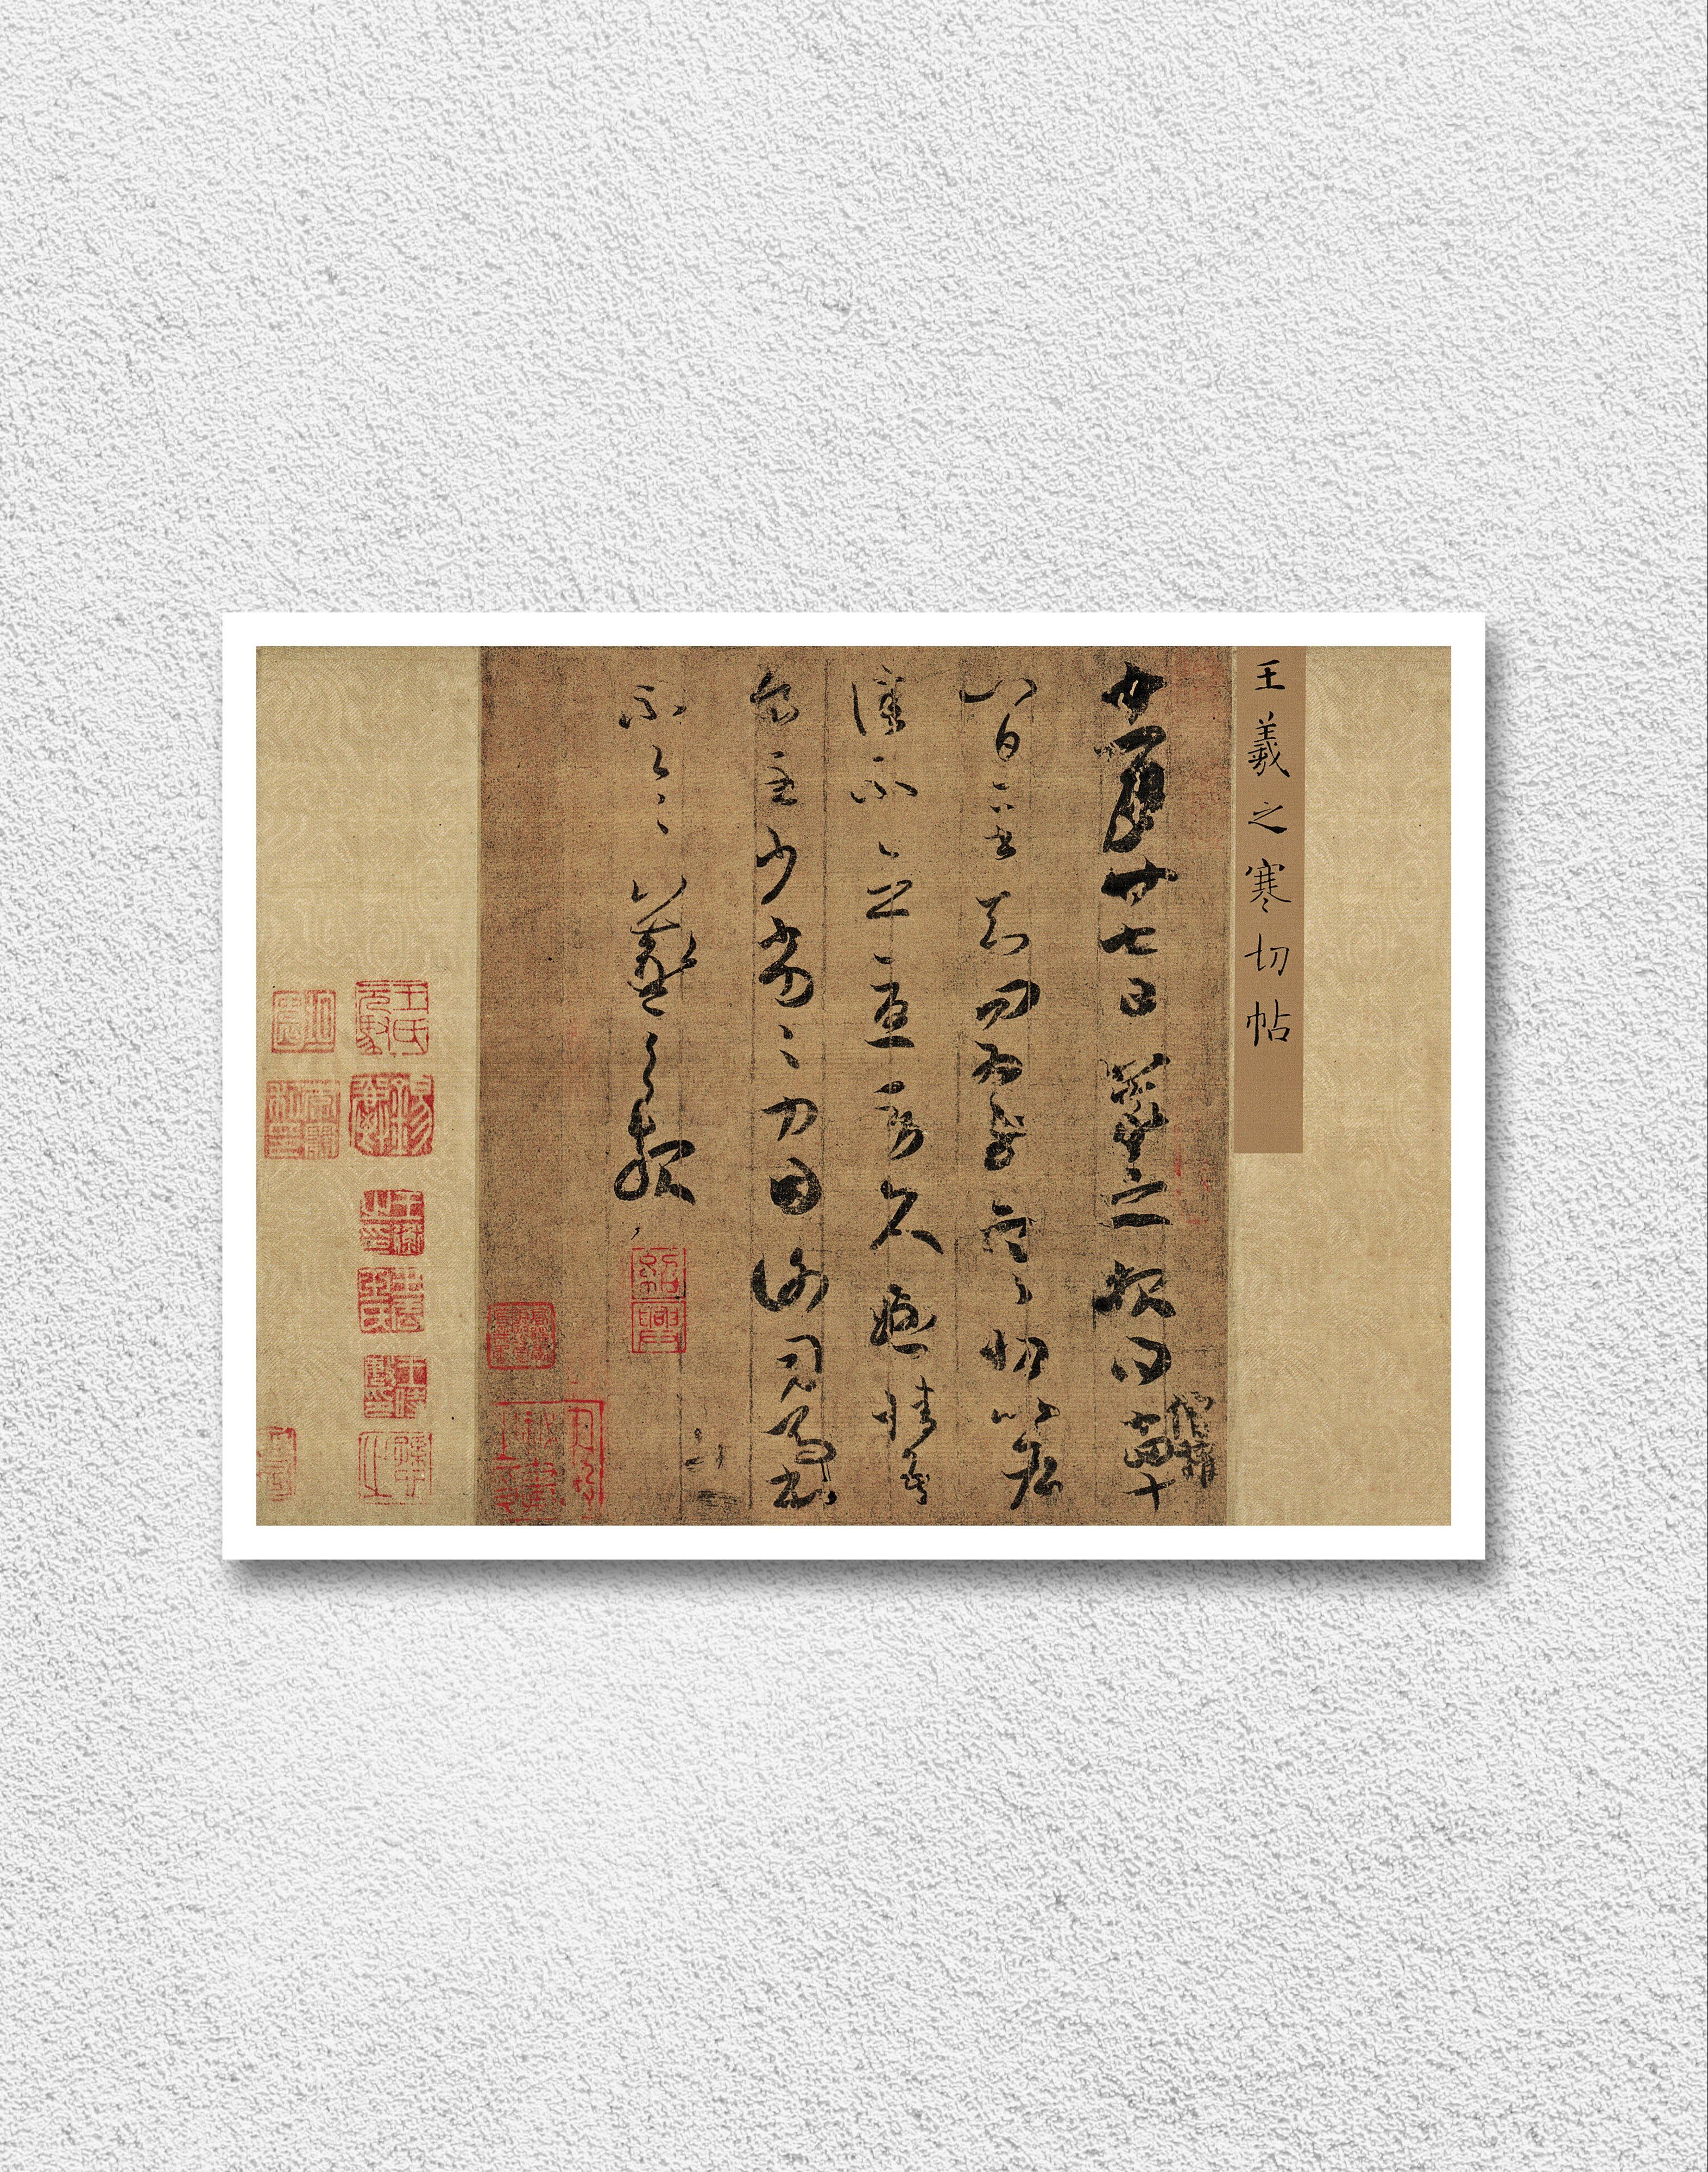 王羲之寒切帖
十一月廿七日羲之報得十四十
僧權
八日二書知問為慰寒切比各
佳不念憂勞久懸情吾
食至少劣劣力因謝司馬書
不一一羲之報
紹興